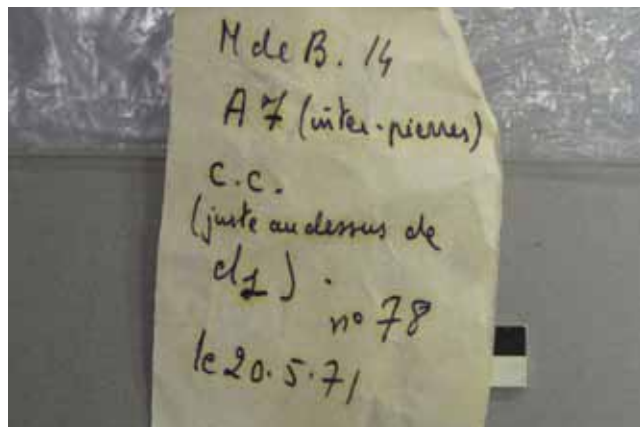 M de B. 14
A 7 (inter-pierres)
C.C.
(juste au dessus de
d1).
nº 78
le 20.5.71